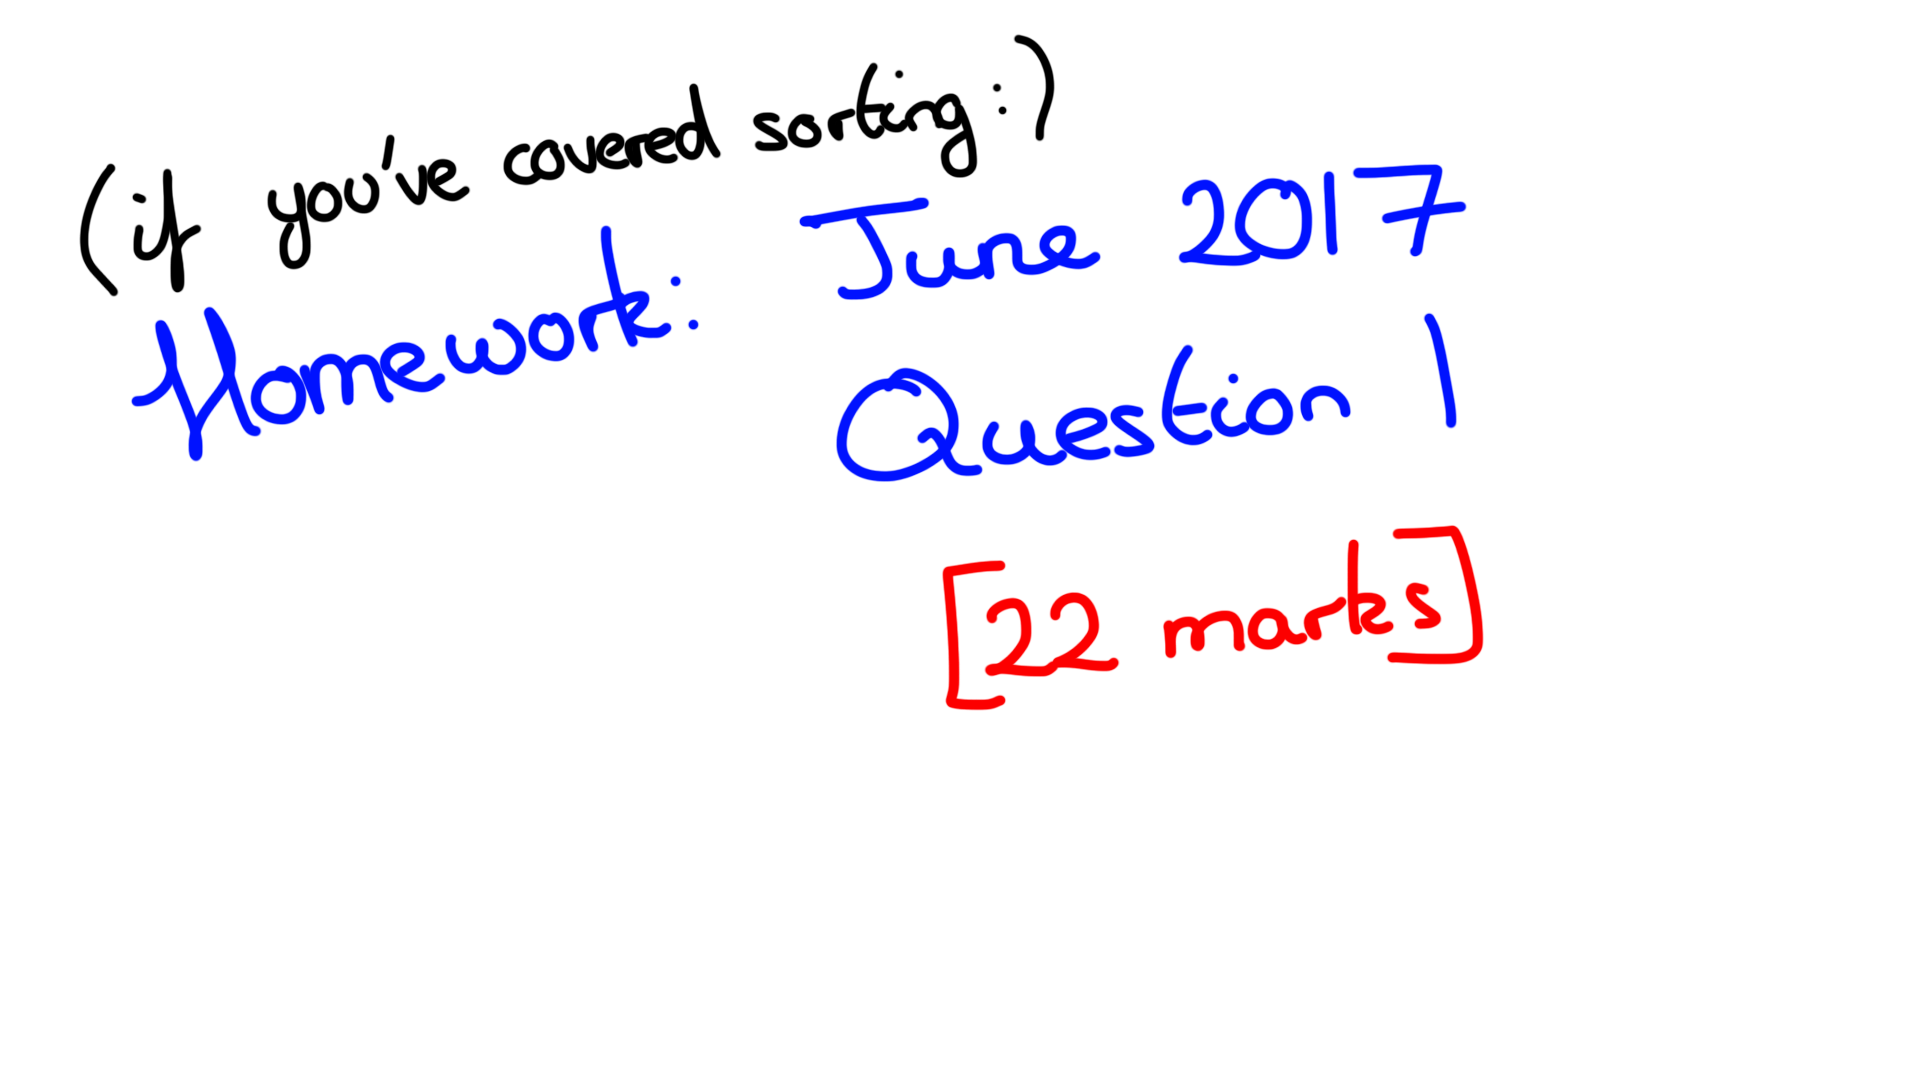 (if you've covered sorting :)
Homework: June 2017
Question 1
[22 marks]